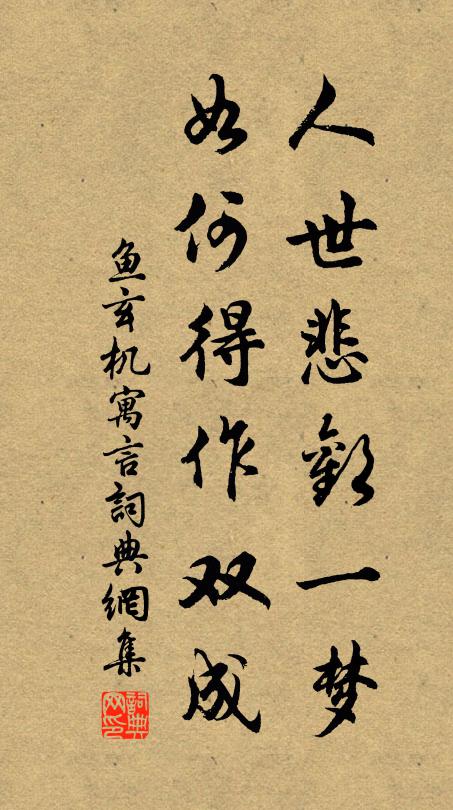 人世悲歡一梦
如何得作双成
鱼玄机寓言詞典網集
詞典网印